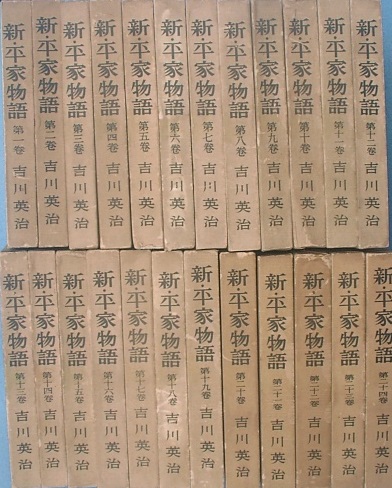 新・平家物語 第一卷 吉川英治
新・平家物語 第二卷 吉川英治
新・平家物語 第三卷 吉川英治
新・平家物語 第四卷 吉川英治
新・平家物語 第五卷 吉川英治
新・平家物語 第六卷 吉川英治
新・平家物語 第七卷 吉川英治
新・平家物語 第八卷 吉川英治
新・平家物語 第九卷 吉川英治
新・平家物語 第十卷 吉川英治
新・平家物語 第十一卷 吉川英治
新・平家物語 第十二卷 吉川英治
新・平家物語 第十三卷 吉川英治
新・平家物語 第十四卷 吉川英治
新・平家物語 第十五卷 吉川英治
新・平家物語 第十六卷 吉川英治
新・平家物語 第十七卷 吉川英治
新・平家物語 第十八卷 吉川英治
新・平家物語 第十九卷 吉川英治
新・平家物語 第二十卷 吉川英治
新・平家物語 第二十一卷 吉川英治
新・平家物語 第二十二卷 吉川英治
新・平家物語 第二十三卷 吉川英治
新・平家物語 第二十四卷 吉川英治